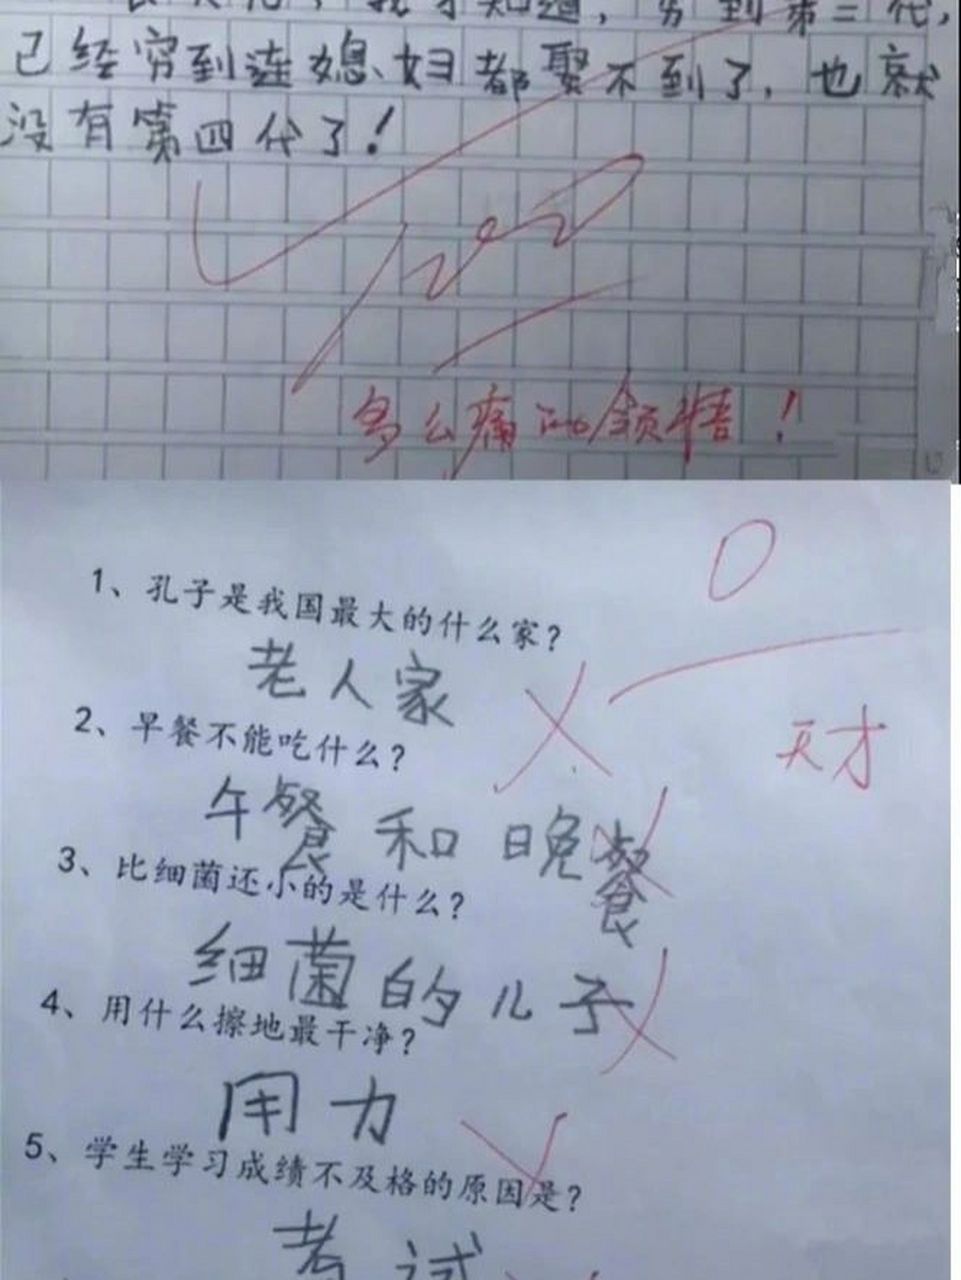 我才知道，穷到第三代，
已经穷到连媳妇都娶不到了，也就
没有第四代了！
多么痛的领悟！
0
1、孔子是我国最大的什么家？
老人家
天才
2、早餐不能吃什么？
午餐和晚餐
3、比细菌还小的是什么？
细菌的儿子
4、用什么擦地最干净？
用力
5、学生学习成绩不及格的原因是？
考试